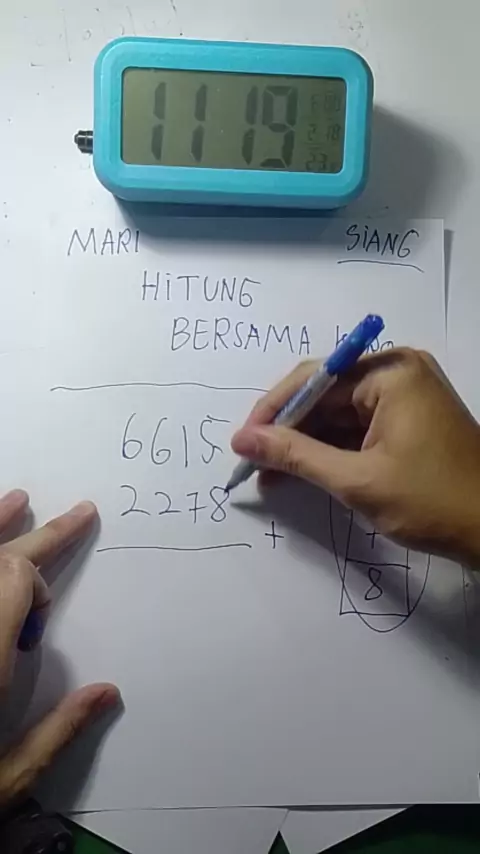 11 19
MARI SIANG
HITUNG
BERSAMA
6615
2278
+
8